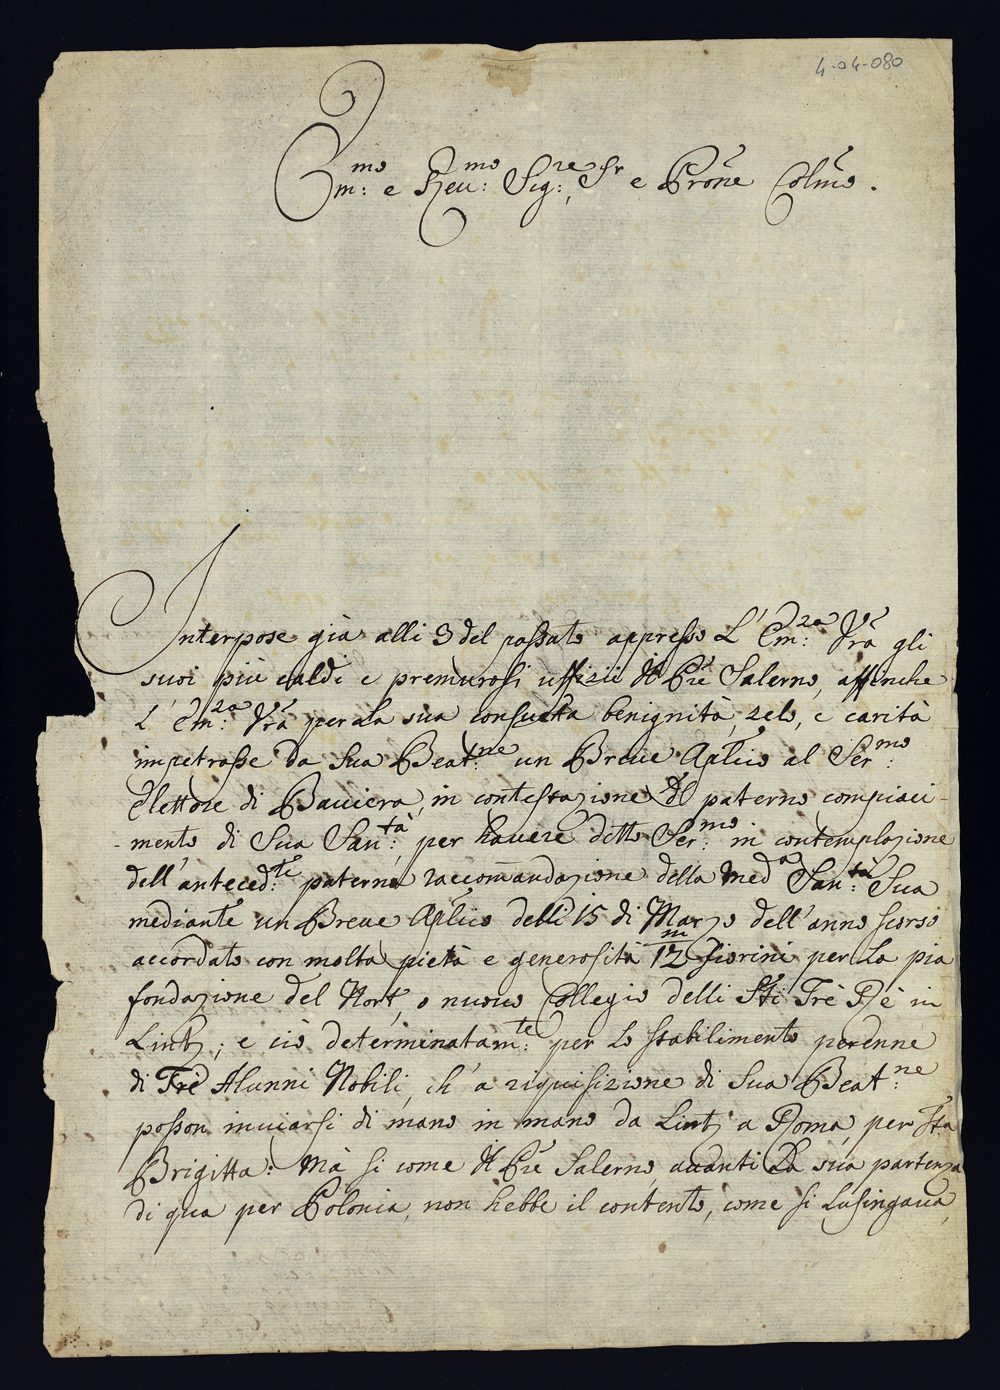 4-04-080
Em:mo e Reu:mo Sig:re, Sr e Prone Colmo.
Interpose già alli 3 del passato appresso L'Em:za Vra gli
suoi più caldi e premurosi uffizii il Pre Salerno, affinche
L'Em:za Vra per La sua consueta benignità, zelo, e carità
impetrasse da Sua Beat:ne un Breue Aplico al Ser:mo
Elettore di Bauiera, in contestazione del paterno compiaci-
mento di Sua San:tà, per hauere detto Ser:mo in contemplazione
dell'anteced:te paterna raccomandazione della meda San:tà Sua
mediante un Breue Aplico delli 15 di Marzo dell'anno scorso
accordato con molta pietà e generosità 12m fiorini per La pia
fondazione del Nort, o nuouo Collegio delli Sti Trè Rè in
Lintz; e ciò determinatam:te per Lo stabilimento perenne
di Trè Alunni Nobili, ch'a riquisizione di Sua Beat:ne
posson inuiarsi di mano in mano da Lintz a Roma, per Sta
Brigitta: Mà si come il Pre Salerno, auanti La sua partenza
di qua per Polonia, non hebbe il contento, come si Lusingaua,